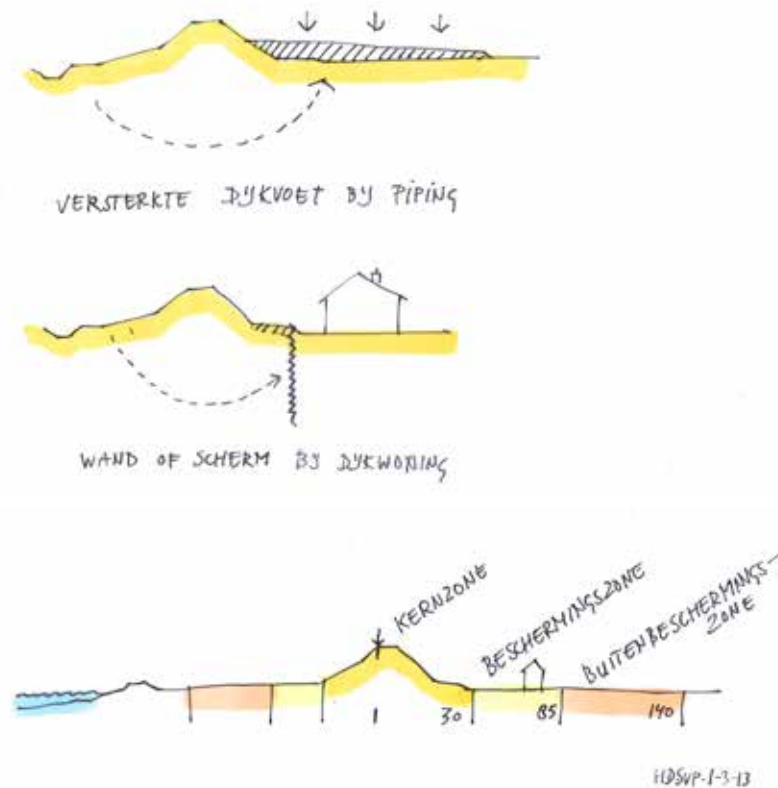 VERSTERKTE DIJKVOET BIJ PIPING
WAND OF SCHERM BIJ DIJKWONING
KERNZONE
BESCHERMINGSZONE
BUITENBESCHERMINGS-
ZONE
1 30 85 140
HDSVP-1-3-13